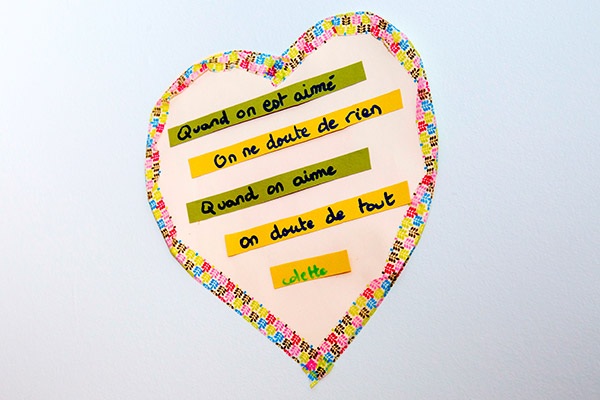 Quand on est aimé
On ne doute de rien
Quand on aime
on doute de tout
colette